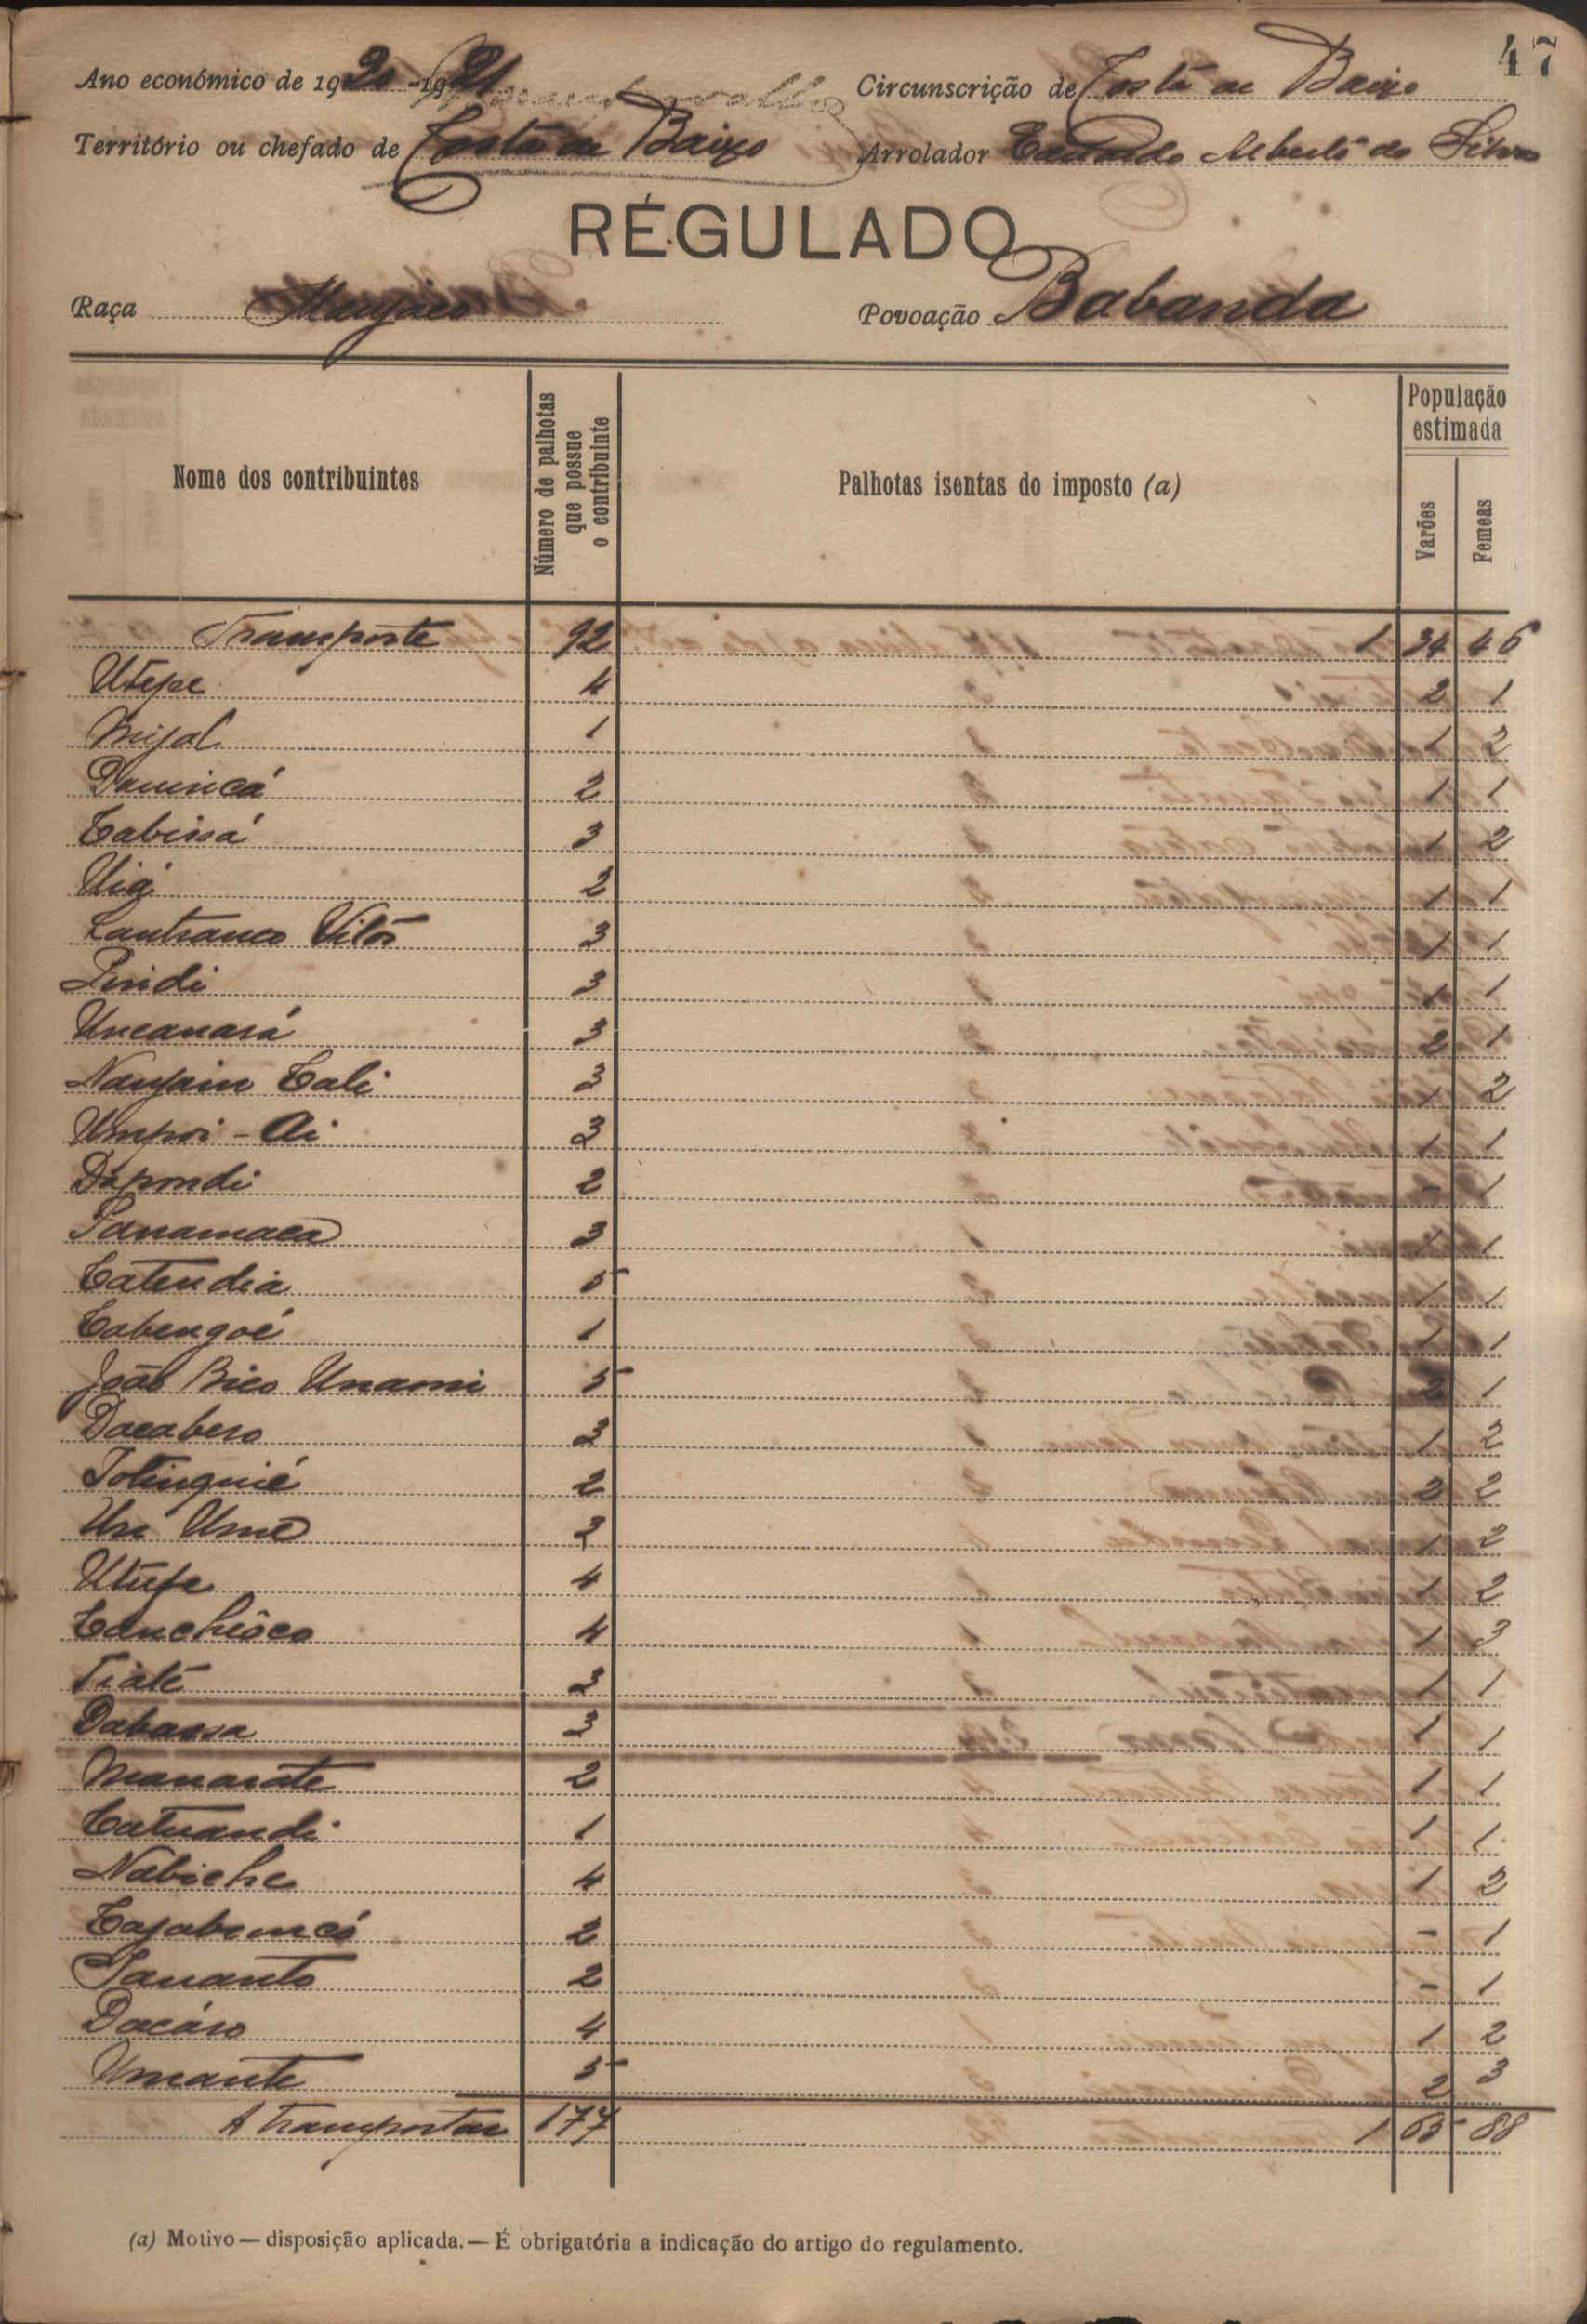 47
Ano económico de 1920-1921 Circunscrição de Costa de Baixo
Território ou chefado de Costa de Baixo Arrolador Eduardo Alberto da Silva
REGULADO
Raça Manjaco Povoação Babanda
Nome dos contribuintes Número de palhotas que possue o contribuinte Palhotas isentas do imposto (a) População estimada Varões Femeas
Transporte 92 1 34 46
Utepe 4 2 1
Mijal 1 1 2
2 1 1
3 1 2
2 1 1
Lantranco Vitôr 3 1 1
3 1 1
Uncanará 3 2 1
Nanjain Cali 3 1 2
Umpoi-Ai 3 1 1
Dapondi 2 - 1
Panamaca 3 1 1
Catendia 5 1 1
Cabengoé 1 1 1
João Bico Unami 5 2 1
Dacabero 3 1 2
Totinguié 2 2 2
3 1 2
4 1 2
Canchôco 4 1 3
Tiaté 3 1 1
3 1 1
Manarate 2 1 1
Catuandi 1 1 1
Nabiche 4 1 2
2 - 1
2 - 1
Dacáro 4 1 2
Umante 5 2 3
A transportar 177 1 65 88
(a) Motivo — disposição aplicada. — É obrigatória a indicação do artigo do regulamento.